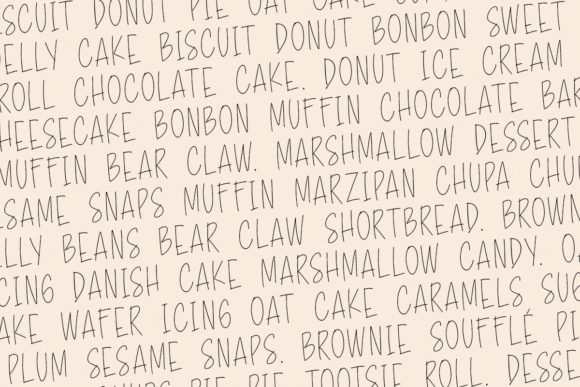 DONUT PIE OAT CAKE
JELLY CAKE BISCUIT DONUT BONBON SWEET
ROLL CHOCOLATE CAKE. DONUT ICE CREAM
CHEESECAKE BONBON MUFFIN CHOCOLATE BAR
MUFFIN BEAR CLAW. MARSHMALLOW DESSERT
SESAME SNAPS MUFFIN MARZIPAN CHUPA CHU
ELLY BEANS BEAR CLAW SHORTBREAD. BROWN
CING DANISH CAKE MARSHMALLOW CANDY. OA
AKE WAFER ICING OAT CAKE CARAMELS SUG
PLUM SESAME SNAPS. BROWNIE SOUFFLÉ PI
PIE PIE TOOTSIE ROLL. DESSE